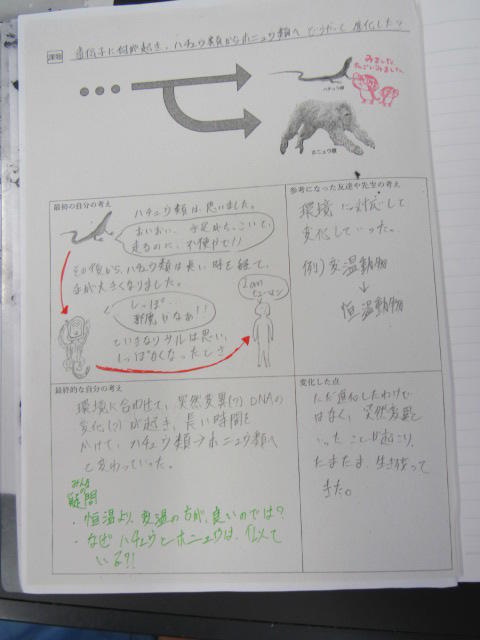 課題
遺伝子に何が起き、ハチュウ類からホニュウ類へ どうやって 進化した?
みました
たいへんよくみました
ハチュウ類
ホニュウ類
最初の自分の考え
ハチュウ類は思いました。
おいおい、手足がちっこいて、
走るのに、不便やで!!
その後から、ハチュウ類は長い時を経て、
手が大きくなりました。
しっぽ…
邪魔かなぁ!!
I am
ヒューマン
と いうさなりサルは思い、
しっぽがなくなったとさ
参考になった友達や先生の考え
環境に対応して
変化していった。
例) 変温動物
↓
恒温動物
最終的な自分の考え
環境に合わせて、突然変異(?) DNAの
変化(?)が起き、長い時間を
かけて、ハチュウ類→ホニュウ類へ
と変わっていった。
みんなの
疑問
・恒温より、変温の方が、良いのでは?
・なぜ ハチュウとホニュウは、似て
いる?!
変化した点
ただ進化したわけ
ではなく、突然変異と
いったことが起こり、
たまたま、生き残って
きた。